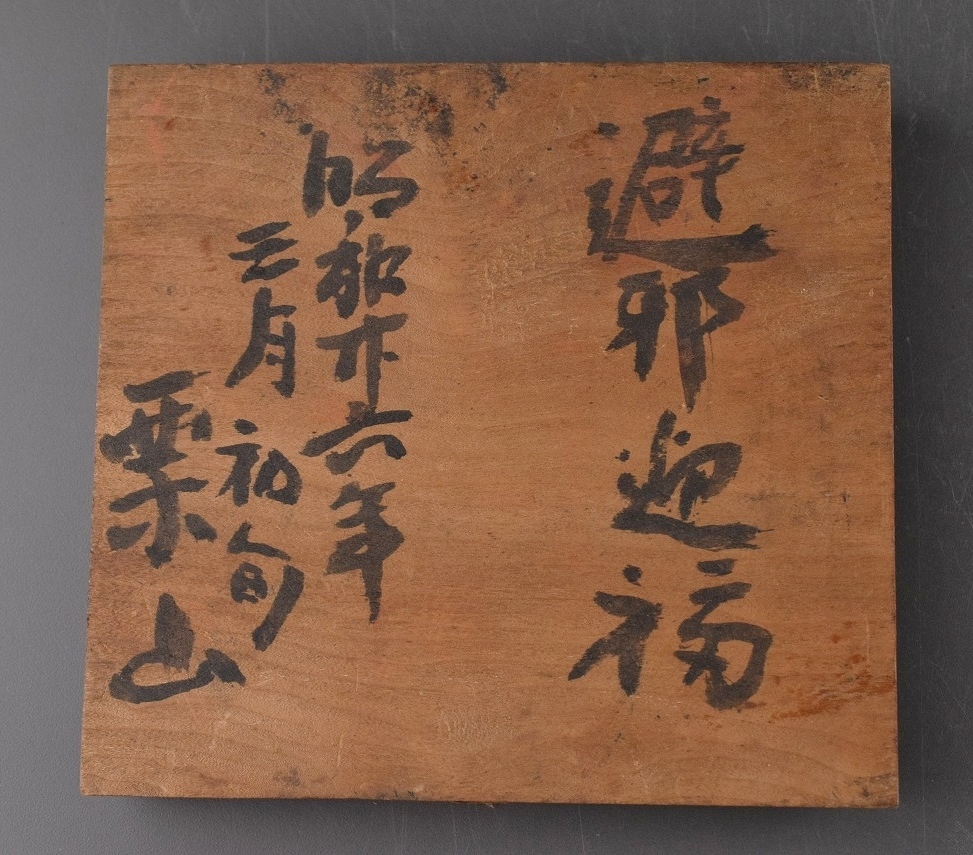 避邪迎福
昭和廿六年
三月初旬
栗山